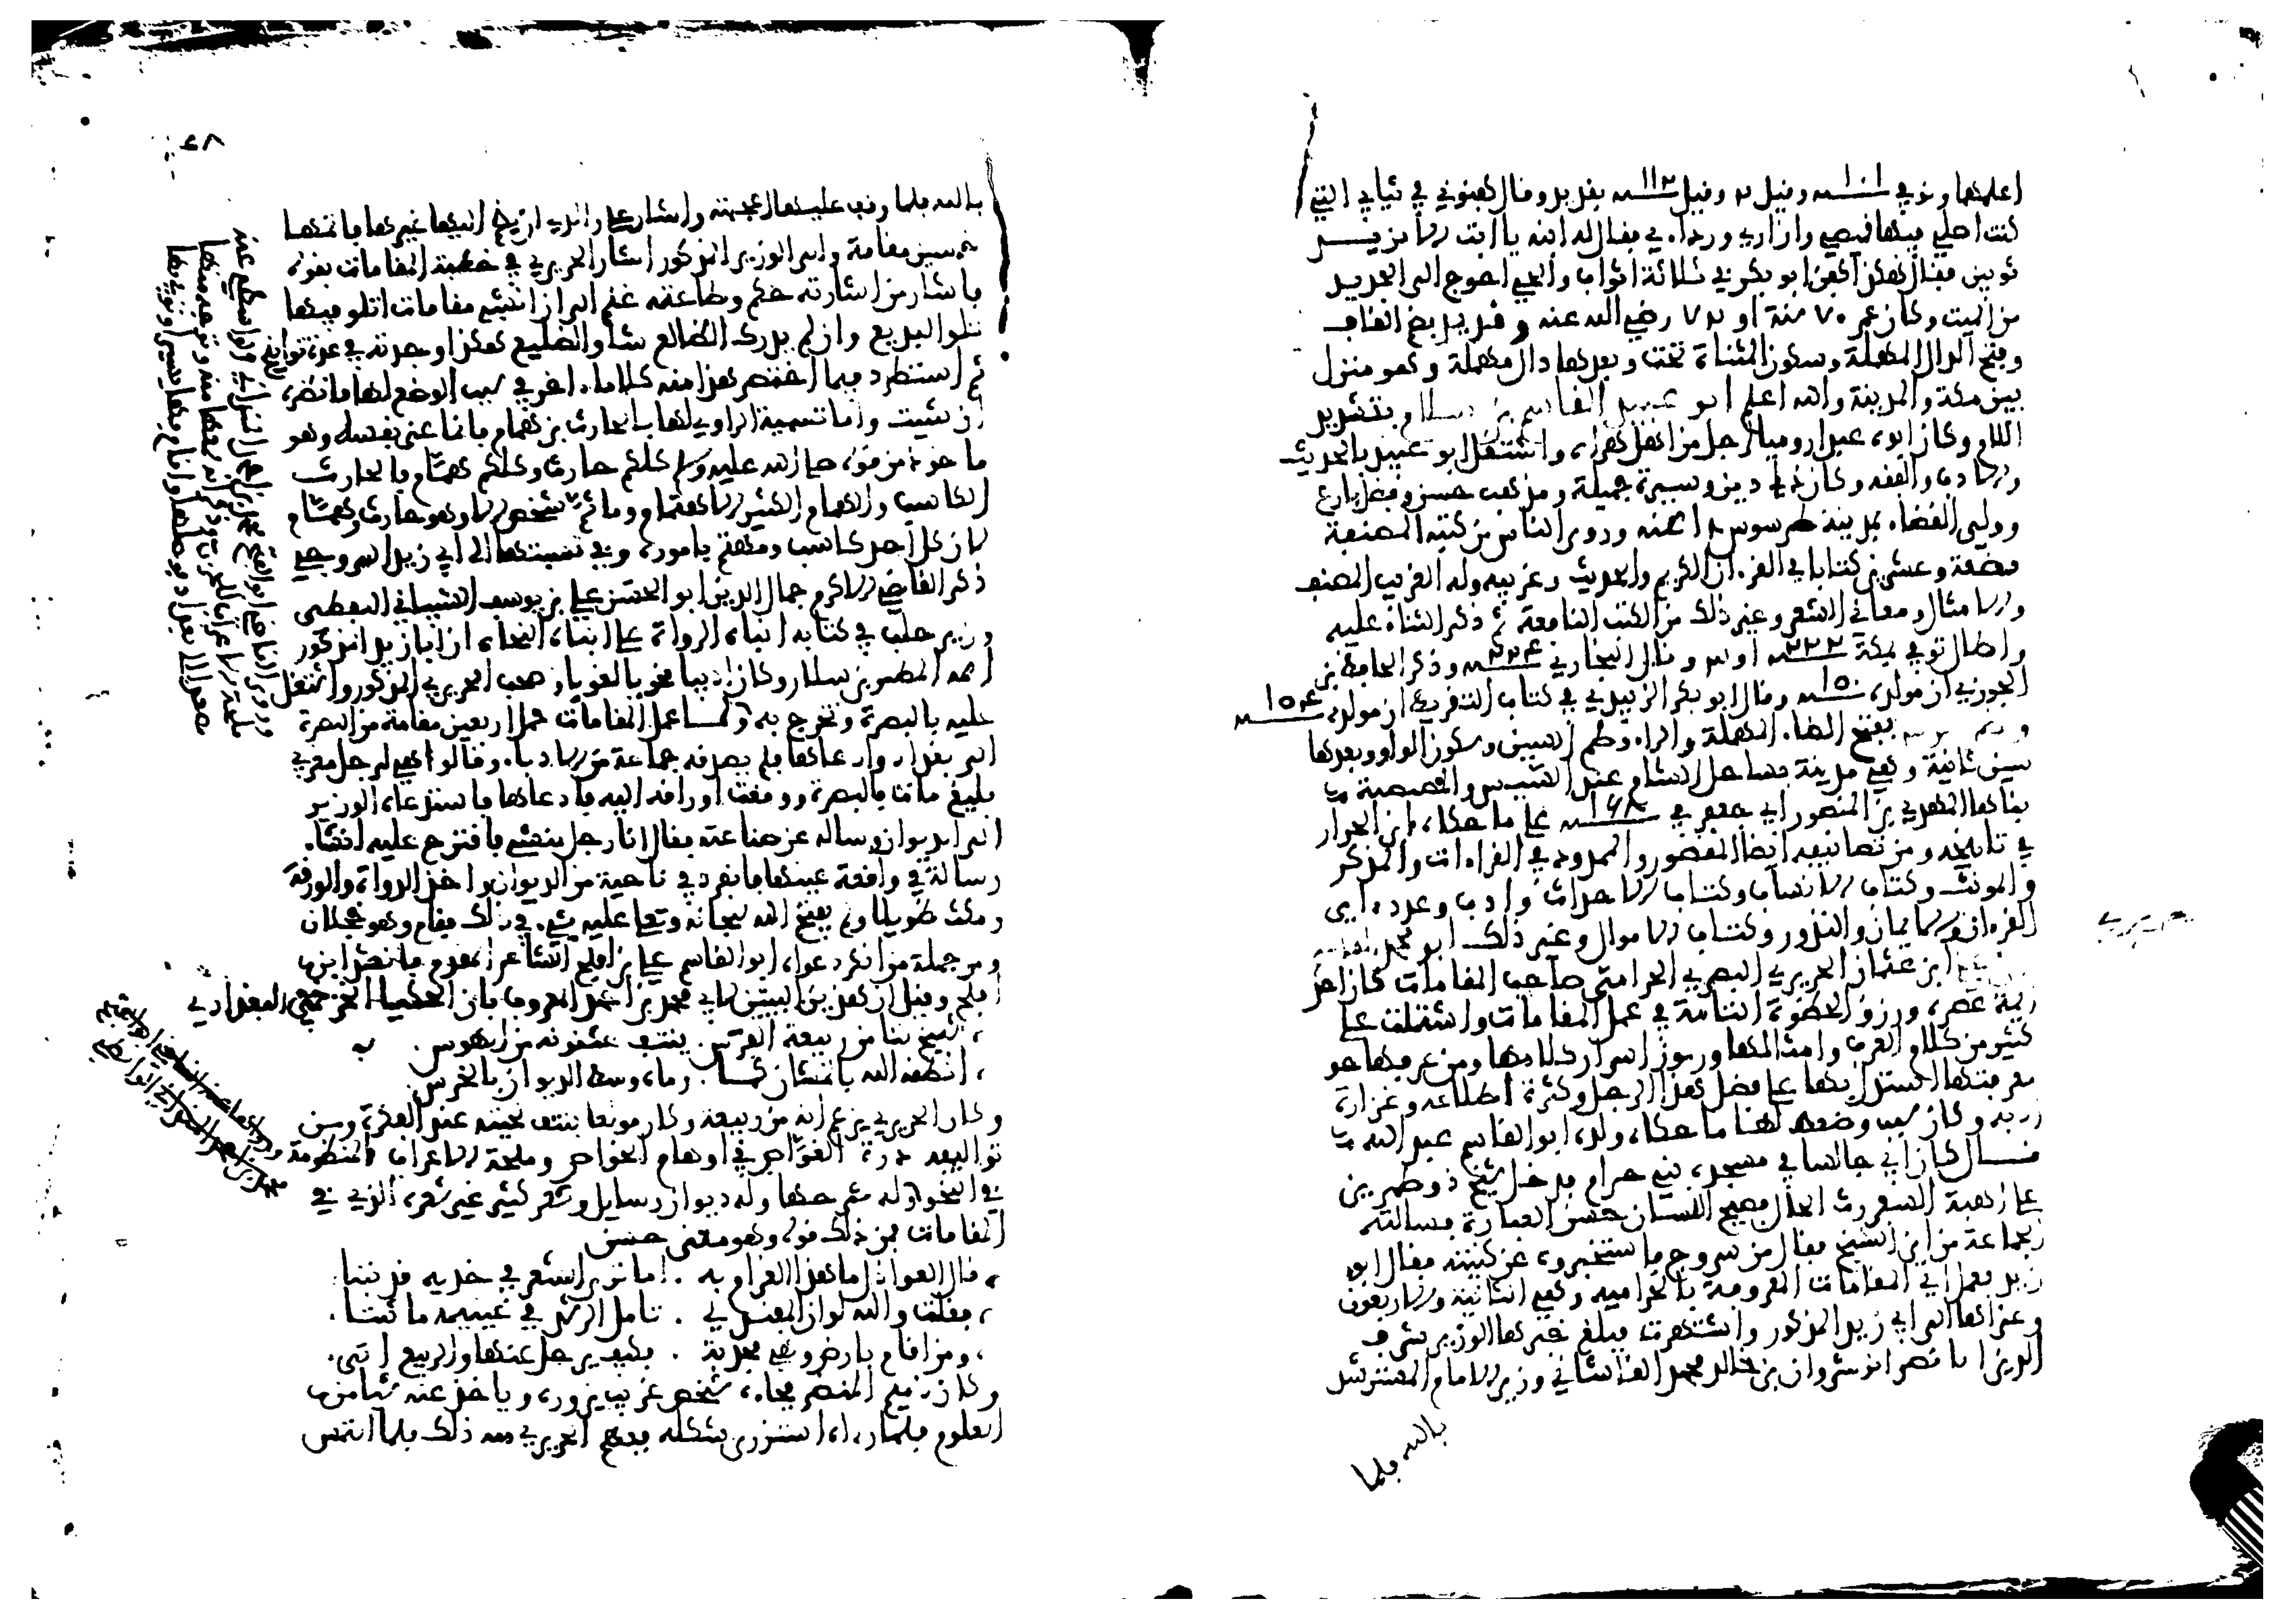 اعلمها وتوفي ١٠١ وقيل ٢ وقيل ١١٢ بقديد وقال كفنوني في ثيابي التي
كنت اصلي فيها قميصي وازاري وردائي فقال له ابنه يا ابت الا نزيد
ثوبين فقال هكذا كفن ابو بكر في ثلاثة اثواب والحي احوج الى الجديد
من الميت وكان عمره ٧٠ سنة او ٧٢ رضي الله عنه وقديد بضم القاف
وفتح الدال المهملة وسكون المثناة تحت وبعدها دال مهملة وهو منزل
بين مكة والمدينة والله اعلم ابو عبيد القاسم بن سلام بتشديد
اللام وكان ابوه عبدا روميا لرجل من اهل هراة واشتغل ابو عبيد بالحديث
والادب والفقه وكان ذا دين وسيرة جميلة ومذهب حسن وفضل بارع
وولي القضاء بمدينة طرسوس ١٨ سنة وروى الناس من كتبه المصنفة
بضعة وعشرين كتابا في القرءان الكريم والحديث وغريبه وله الغريب المصنف
والامثال ومعاني الشعر وغير ذلك من الكتب النافعة ثم ذكر الثناء عليه
واطال توفي بمكة ٢٢٢ او ٣ وقال البخاري ٢٢٤ وذكر الحافظ بن
الجوزي ان مولده ١٥٠ وقال ابو بكر الزبيدي في كتاب التقريظ ان مولده ١٥٤
بفتح الطاء المهملة والراء وضم السين وسكون الواو وبعدها
سين ثانية وهي مدينة بساحل الشام عند السيس والمصيصة
بناها المهدي بن المنصور ابي جعفر في ١٦٨ على ما حكاه ابن الجزار
في تاريخه ومن تصانيفه ايضا المقصور والممدود في القراءات والمذكر
والمونث وكتاب الانساب وكتاب الاحداث وادب وعدد ءاي
القرءان والايمان والنذور وكتاب الاموال وغير ذلك ابو محمد القاسم
ابن عثمان الحريري البصري الحرامي صاحب المقامات كان احد
ايمة عصره ورزق الحظوة التامة في عمل المقامات واشتملت على
كثير من كلام العرب وامثالها ورموز اسرار كلامها ومن عرفها حق
معرفتها استدل بها على فضل هذا الرجل وكثرة اطلاعه وغزارة
ادبه وكان سبب وضعه لها ما حكاه ولده ابو القاسم عبد الله
قال كان ابي جالسا في مسجده بني حرام فدخل شيخ ذو طمرين
عليه اهبة السفر رث الحال فصيح اللسان حسن العبارة فسالته
الجماعة من اين الشيخ فقال من سروج فاستخبروه عن كنيته فقال ابو
زيد فعمل ابي المقامات المعروفة بالحرامية وهي الثانية والاربعون
وعزاها الى ابي زيد المذكور واشتهرت فبلغ خبرها الوزير شرف
الدين ابا نصر انوشروان بن خالد محمد القاشاني وزير الامام المسترشد
بالله فلما
٤٨
بالله فلما وقف عليها اعجبته واشار على والدي ان يضم اليها غيرها فاتمها
خمسين مقامة والى الوزير المذكور اشار الحريري في خطبة المقامات بقوله
فاشار من اشارته حكم وطاعته غنم الى ان انشئ مقامات اتلو فيها
تلو البديع وان لم يدرك الظالع شاو الضليع هكذا وجدته في عدة تواريخ
ثم استطرد فيما اختصر هذا منه كلاما ءاخر في سبب الوضع لها فانظره
ان شيت واما تسمية الراوي لها بالحارث بن همام فانما عنى نفسه وهو
ماخوذ من قوله صلى الله عليه وسلم كلكم حارث وكلكم همام فالحارث
الكاسب والهمام الكثير الاهتمام وما من شخص الا وهو حارث وهمام
لان كل احد كاسب ومهتم باموره وفي نسبتها الى ابي زيد السروجي
ذكر القاضي الاكرم جمال الدين ابو الحسن علي بن يوسف الشيباني القفطي
وزير حلب في كتابه انباء الرواة على ابناء النحاة ان ابا زيد المذكور
اسمه المطهر بن سلار وكان اديبا نحويا لغويا صحب الحريري المذكور واشتغل
عليه بالبصرة وتخرج به ولما عمل المقامات عمل اربعين مقامة من البصرة
الى بغداد وادعاها فلم يصدقه جماعة من الادباء وقالوا هي لرجل مغربي
بليغ مات بالبصرة ووقعت اوراقه اليه فادعاها فاستدعاه الوزير
الى الديوان وساله عن صناعته فقال انا رجل منشئ فاقترح عليه انشاء
رسالة في واقعة عينها فانفرد في ناحية من الديوان واخذ الدواة والورقة
ومكث طويلا ولم يفتح الله سبحانه وتعالى عليه بشيء في ذلك فقام وهو خجلان
ومن جملة من انكر دعواه ابو القاسم علي بن افلح الشاعر المعروف فانشد ابن
افلح وقيل ان هذين البيتين لابي محمد بن احمد المعروف بابن الحكينا الحريمي البغدادي
، شيخ لنا من ربيعة الفرس . ينتف عثنونه من الهوس .
، انطقه الله بالمشان كما . رماه وسط الديوان بالخرس .
وكان الحريري يزعم انه من ربيعة وكان مولعا بنتف لحيته عند الفكرة ومن
تواليفه درة الغواص في اوهام الخواص وملحة الاعراب المنظومة
في النحو وله شرحها وله ديوان رسايل وشعر كثير غير شعره الذي في
المقامات فمن ذلك قوله وهو معنى حسن
، قال العواذل ما هذا الغرام به . اما ترى الشعر في خديه قد نبتا .
، فقلت والله لو ان المفند لي . تامل الرشد في عينيه ما ثبتا .
، ومن اقام بارض وهي مجدبة . فكيف يرحل عنها والربيع اتى .
وكان دميم المنظر فجاءه شخص غريب يزوره وياخذ عنه شيا من
العلوم فلما رءاه استزرى شكله ففهم الحريري منه ذلك فلما التمس